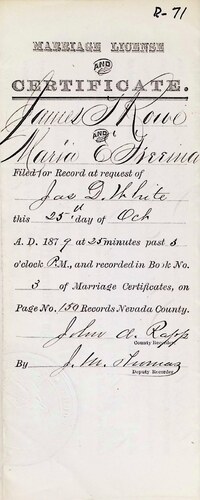 R-71
MARRIAGE LICENSE
AND
CERTIFICATE.
James S Rowe
AND
Maria E Freeman
Filed for Record at request of
Jas D. White
this 25th day of Oct
A. D. 1879 at 25 minutes past 3
o'clock P.M., and recorded in Book No.
3 of Marriage Certificates, on
Page No. 159 Records Nevada County.
John A. Rapp
County Recorder
By J. M. Thomas
Deputy Recorder